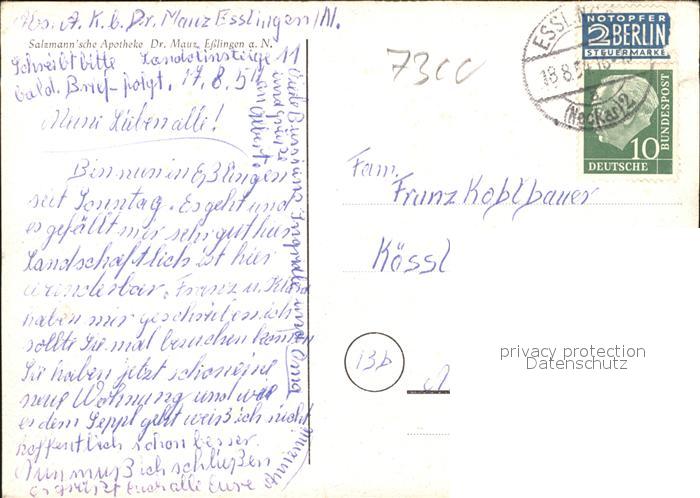 Abs. A.K.b. Dr. Mauz Esslingen/N.
Salzmann'sche Apotheke Dr. Mauz, Eßlingen a. N.
Landolinsteige 11
Schreibt bitte
bald. Brief folgt. 17.8.54
Meine Lieben alle!
Bin nun in Eßlingen
seit Sonntag. Es geht und
es gefällt mir sehr gut hier
Landschaftlich ist hier
wunderbar. Franz u.
haben mir geschrieben ich
sollte Sie mal besuchen kommen
Sie haben jetzt schon eine
neue Wohnung und wie
es dem Seppl geht weiß ich nicht
hoffentlich schon besser.
Nun muß ich schließen
es grüßt Euch alle Eure
73CC
ESSLINGEN
18.8.54.18
a
(Neckar) 2
NOTOPFER
2 BERLIN
STEUERMARKE
10
DEUTSCHE
BUNDESPOST
Fam.
Franz Kohlbauer
Kössl
13b
privacy protection
Datenschutz